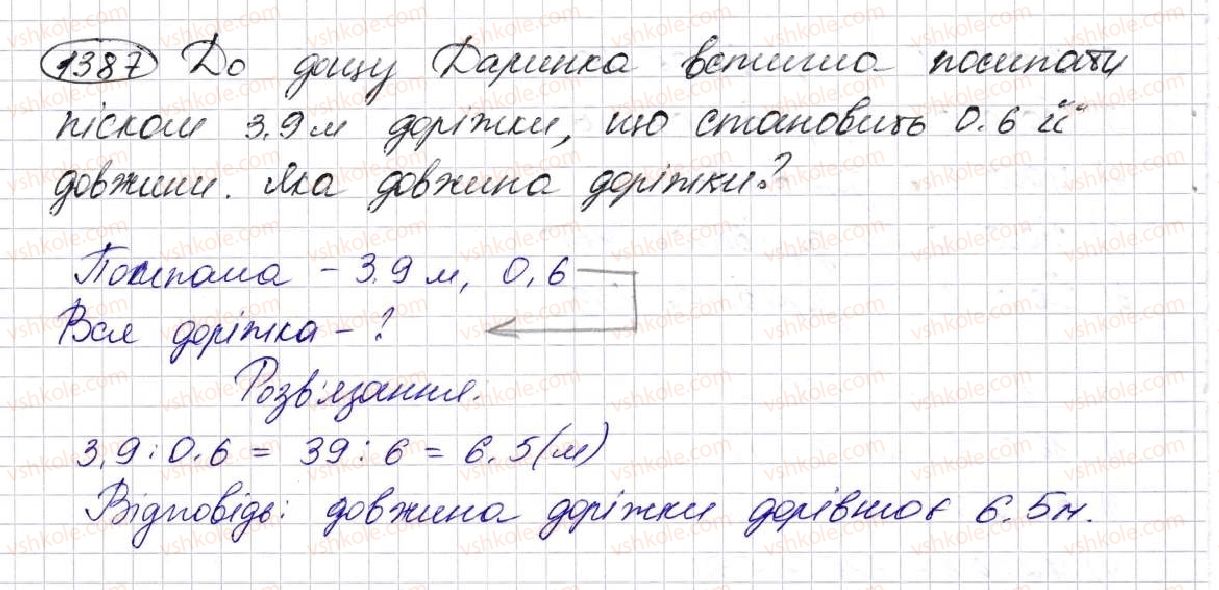 1387 До дощу Даринка встигла посипати
піском 3,9 м доріжки, що становить 0,6 її
довжини. Яка довжина доріжки?
Посипала - 3,9 м, 0,6
Вся доріжка - ?
Розв'язання.
3,9 : 0,6 = 39 : 6 = 6,5 (м)
Відповідь: довжина доріжки дорівнює 6,5м.